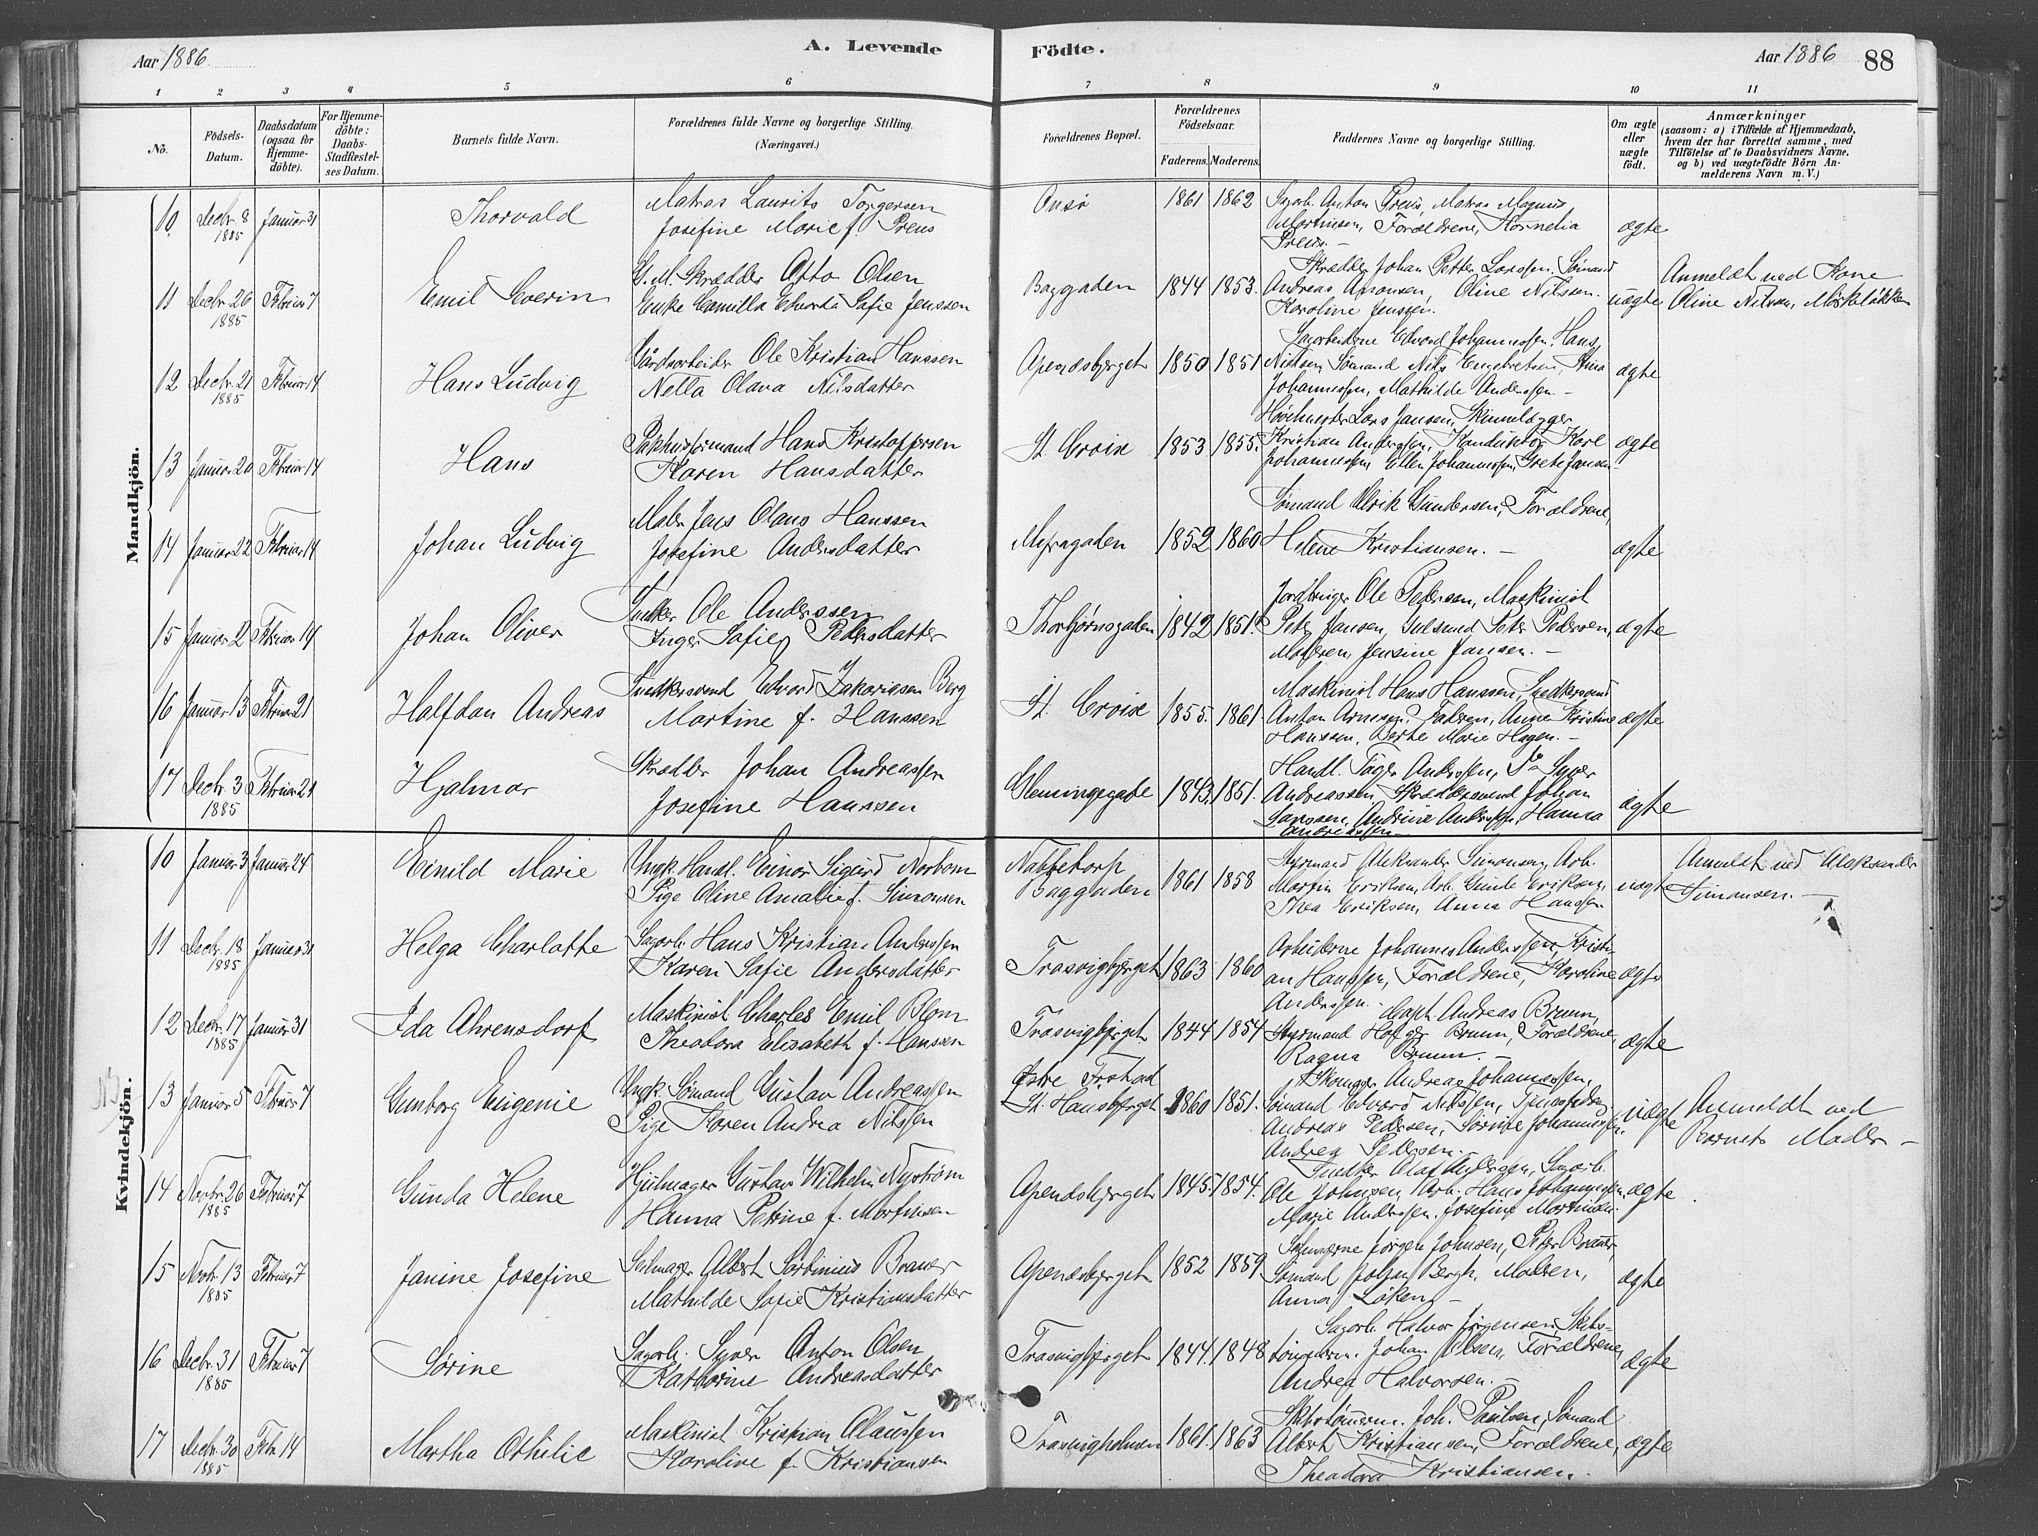 Aar 1886
A. Levende
Födte.
Aar 1886
88
1 2 3 4 5 6 7 8 9 10 11
No.
Födsels-
Datum.
Daabsdatum
(ogsaa for
Hjemme-
döbte).
For Hjemme-
döbte:
Daabs-
Stadfæstel-
ses Datum.
Barnets fulde Navn.
Forældrenes fulde Navne og borgerlige Stilling.
(Næringsvei.)
Forældrenes Bopæl.
Forældrenes
Födselsaar.
Faderens. Moderens.
Faddernes Navne og borgerlige Stilling.
Om ægte
eller
uægte
födt.
Anmærkninger
(saasom: a) i Tilfælde af Hjemmedaab,
hvem der har forrettet samme, med
Tilföielse af to Daabsvidners Navne.
og b) ved uægtefödte Börn An-
melderens Navn m. V.)
Mandkjön.
10 Decbr. 8 1885 Januar 31 Thorvald
Matros Laurits Torgersen
Josefine Marie f. Preus
Onsø 1861 1862
Sagarb. Anton Preus, Matros Magnus
Martinsen, Forældrene, Kornelia
Preus. –
ægte
11 Decbr. 26 1885 Februar 7 Emil Severin
G.M. Skrædder Otto Olsen
Enke Camilla Edvarda Safie Jenssen
Baggaden 1844 1853.
Skrædder Johan Petter Larssen, Sømand
Andreas Aronsen, Oline Nilssen.
Karoline Jenssen.
uægte
Anmeldt ved Kone
Oline Nilssen, Mørkeløkken
12 Decbr. 21 1885 Februar 14 Hans Ludvig
Gårdsarbeider Ole Kristian Hanssen
Nella Olava Nilsdatter
Apenæsbjerget 1850 1851
Sagarbeiderne Edvard Johannessen, Hans
Nielsen, Sømand Nils Engebretsen, Stina
Johannessen, Mathilde Anderssen. –
ægte
13 Januar 20 Februar 14 Hans
Pakhusformand Hans Kristoffersen
Karen Hansdatter
St. Croix 1853 1855.
Lars Jansen,
Kristian Anderssen, Konduktør Karl
Johannessen, Ellen Johannessen, Grete Jansen.
ægte
14 Januar 22 Februar 14 Johan Ludvig
Maler Jens Olaus Hanssen
Josefine Andersdatter
Mefragaden 1852 1860
Sømand Ulrik Gundersen, Forældrene,
Helene Kristiansen. –
ægte
15 Januar 2 Februar 14 Johan Oliver
Snedker Ole Anderssen
Inger Safie Pedersdatter
Thorbjørnsgaden 1842 1851.
Ole Pedersen, Maskinist
Peter Jansen, Peter Pedersen,
Moderen, Jensine Jansen. –
ægte
16 Januar 13 Februar 21 Halfdan Andreas
Snedkersvend Edvard Zakariasen Berg
Martine f. Hanssen
St. Croix 1855. 1861.
Maskinist Hans Hanssen, Snedkersvend
Anton Arnesen, Faderen, Anne Kristine
Hanssen, Berte Marie Hagen. –
ægte
17 Decbr. 3 1885 Februar 21 Hjalmar
Skrædder Johan Andreassen
Josefine Hanssen
Glemmingegade 1843. 1851.
Handl. Inger Anderssen, Do Syver
Andreassen, Skræddersvend Johan
Larssen, Andrine Anderssen, Hanna
Andreassen
ægte
Kvindekjön.
10 Januar 3 Januar 24 Einild Marie
Ungk. Handl. Einar Sigurd Norbom
Pige Oline Amalie f. Simonsen
Nabbetorp
Baggaden 1861 1858
Styrmand Aleksander Simonsen, Arb.
Martin Eriksen, Arb. Gunde Eriksen,
Thea Eriksen, Anna Hanssen
uægte
Anmeldt ved Aleksander
Simonsen. –
11 Decbr. 18 1885 Januar 31 Helga Charlotte
Sagarb. Hans Kristian Anderssen
Karen Safie Andersdatter
Trosvigbjerget 1863 1860
Arbeiderne Johannes Anderssen, Kristi-
an Hanssen, Forældrene, Karoline
Anderssen. –
ægte
12 Decbr. 17 1885 Januar 31 Ida Ahrensdorf
Maskinist Charles Emil Blom
Theodora Elisabeth f. Hanssen
Trosvigbjerget 1844 1854
Capt. Andreas Bruun,
Styrmand Holger Bruun, Forældrene,
Ragna Bruun. –
ægte
13 Januar 5 Februar 7 Gunborg Eugenie
Ungk. Sømand Gustav Andreassen
Pige Karen Andrea Nilssen
Østre Fredstad
St. Hansbjerget 1860 1851.
Skomager Andreas Johannessen,
Sømand Edvard Nilssen,
Andreas Pedersen, Sørine Johannessen,
Andrea Pedersen.
uægte
Anmeldt ved
Barnets Moder –
14 Novbr. 26 1885 Februar 7 Gunda Helene
Hjulmager Gustav Wilhelm Nystrøm
Hanna Petrine f. Mortinsen
Apenæsbjerget 1845. 1854.
Snedker Olaf Andersen, Sagarb.
Ole Johnsen, Arb. Hans Johannessen
Marie Anderssen, Josefine Martinsen
ægte
15 Novbr. 13 1885 Februar 7 Janine Josefine
Seilmager Albert Severinius Brauer
Mathilde Safie Kristiansdatter
Apenæsbjerget 1852 1859
Jørgen Johnsen, Peter Brauer
Sømand Johan Bergh, Moderen,
Anna Løken. –
ægte
16 Decbr. 31 1885 Februar 7 Sørine
Sagarb. Syver Anton Olsen
Kathrine Andreasdatter
Trosvigbjerget 1844. 1848
Sagarb. Halvor Jørgensen, Skibs-
tømmerm. Johan Olsen, Forældrene,
Andrea Halvorsen. –
ægte
17 Decbr. 30 1885 Febr. 14 Martha Othilie
Maskinist Kristian Olaussen
Karoline f. Kristiansen
Trosvigholmen 1861. 1863
Skibstømmerm. Joh. Paulsen, Sømand
Albert Kristiansen, Forældrene,
Theodora Kristiansen.
ægte